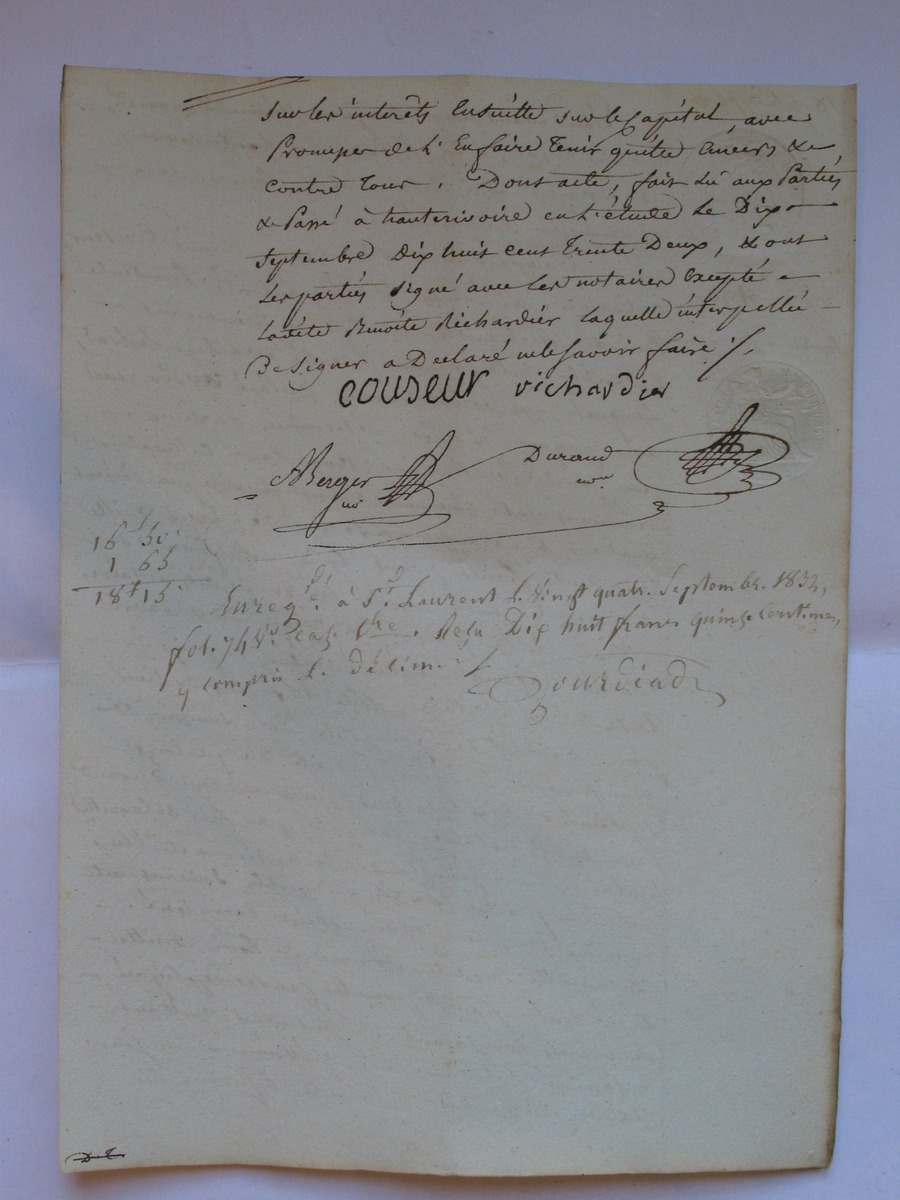 sur les intérêts ensuitte sur le Capital, avec
Promesse de l'En faire Tenir quitte Envers &
Contre Tous. Dont acte, fait Lu aux Partiés
& Passé à hauterivoire en L'étude Le Dix
Septembre Dix huit cent Trente Deux, & ont
Les partiés Signé avec Les notaires Excepté
Ladite Benoite Richardier Laquelle interpellée
De Signer a Déclaré ne le Savoir faire ./.
couseur richardier
ABerger Durand
no
16 f 50
1 65
18 f 15
Enreg.é à St. Laurent le Vingt quatre Septembre 1832,
fol. 74 V° Reçu Dix huit francs quinze Centimes,
y compris le décime ./.
D. T.